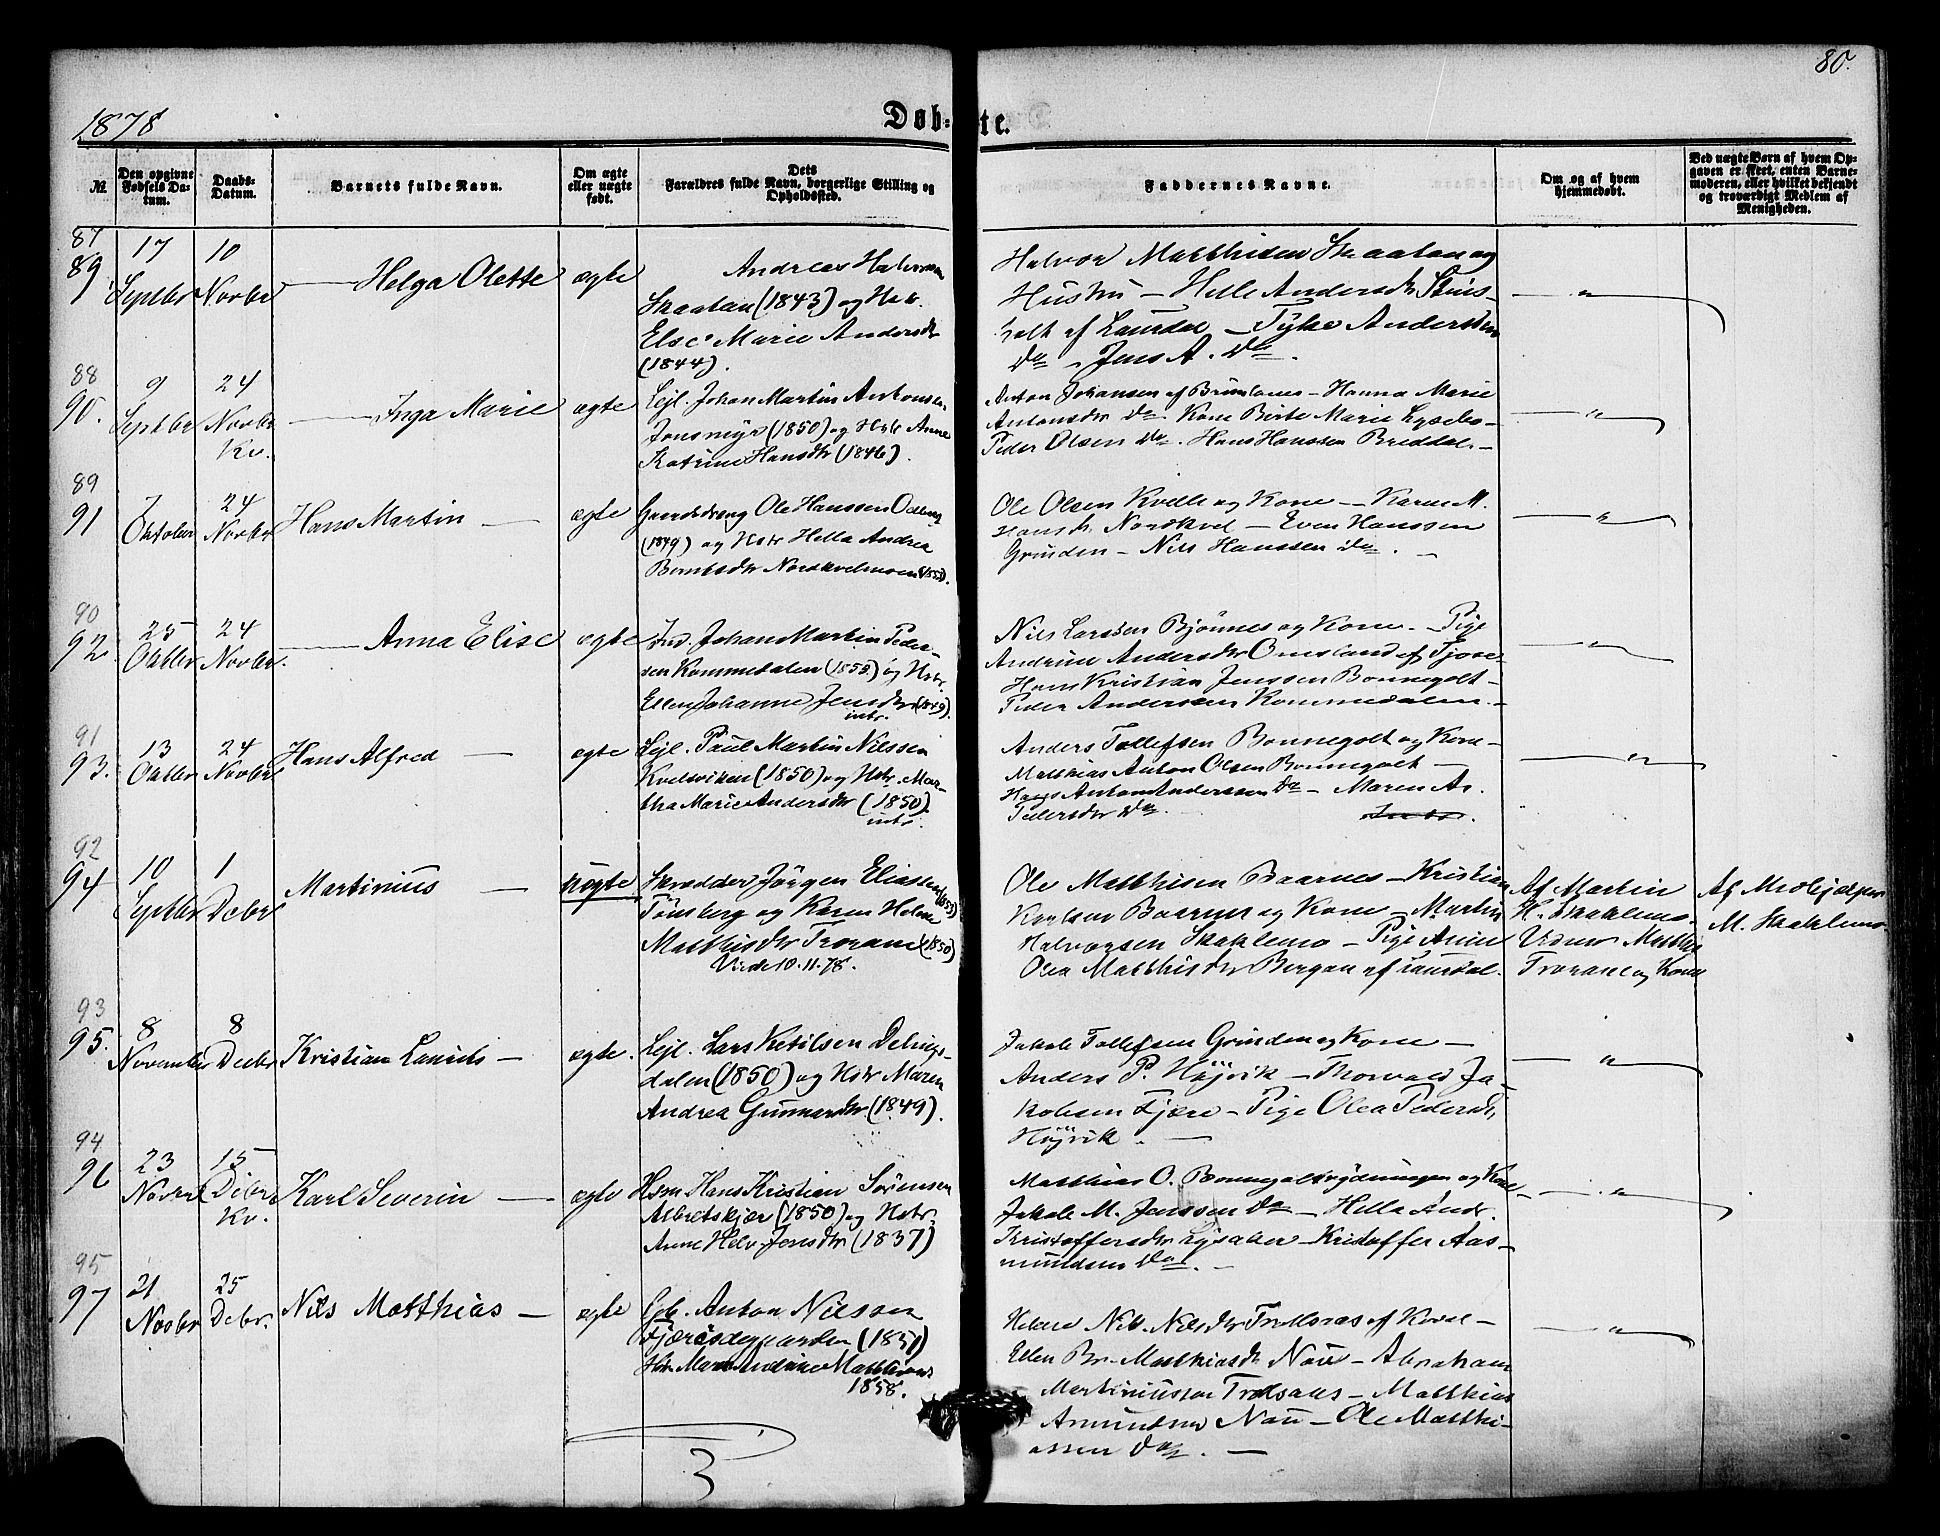 80.
1878
Døb-
te.
№.
Den opgivne Fødsels Datum.
Daabs-Datum.
Barnets fulde Navn.
Om ægte eller uægte født.
Dets Forældres fulde Navn, borgerlige Stilling og Opholdssted.
Faddernes Navne.
Om og af hvem hjemmedøbt.
Ved uægte Børn af hvem Opgaven er skeet, enten Barnemoderen, eller hvilket bekjendt og troværdigt Medlem af Menigheden.
87
89
17 Septbr
10 Novbr
Helga Olette
ægte
Andreas Halvorsen
Skaatan (1843) og Hstr.
Else Marie Andersdtr
(1844).
Halvor Matthisen Skaatan og
Hustru — Helle Andersdtr
holt af Laurdal — Andersen
Do — Jens A. Do.
— " —
88
90.
9 Septbr
24 Novbr Kv.
Inga Marie
ægte
Lejl. Johan Martin Antonsen
Jonsmyr (1850) og Hstr Anne
Katrine Hansdtr (1846).
Anton Johansen af — Hanna Marie
Antonsdtr Do. Kone Berte Marie Lysebo —
Peder Olsen Do. Hans Hanssen Breddal —
— " —
89
91
7 Oktober
24 Novbr
Hans Martin —
ægte
Ole Hanssen
(1849) og Hstr Hella Andrea
Berntsdtr
Ole Olsen Kvelle og Kone — Karen M.
Hansdtr Nordkvel — Even Hanssen
Grinden — Nils Hanssen Do. —
— " —
90
92.
25 Oktbr
24 Novbr.
Anna Elise
ægte
Ind. Johan Martin Peder-
sen Kommedalen og Hstr.
Ellen Johanne Jensdtr (1849).
intr.
Nils Larssen Bjønnes og Kone — Pige
Andrine Andersdtr Omsland af Tjose —
Hans Kristian Jenssen Bonnegolt —
Peder Anderssen Kommedalen. —
— " —
91
93.
13 Oktbr
24 Novbr
Hans Alfred —
ægte
Lejl. Paul Martin Nilssen
Kvelsviken (1850) og Hstr. Mar-
tha Marie Andersdtr (1850).
intr.
Anders Tollefsen Bonnegolt og Kone —
Matthias Anton Olsen Bonnegolt —
Hans Anton Anderssen Do — Maren An.
Pedersdtr Do.
— " —
92
94
10 Septbr
1 Debr
Martinius —
uægte
Skrædder Jörgen Eliassen
Tönsberg og Karen Helene
Matthisdtr Trorane (1850)
Vide 10.11.78.
Ole Matthisen Baarnes — Kristian
Karlsen Baarnes og Kone — Martin
Halvorsen Skaklemo — Pige Anne
Olea Matthisdtr Bergan af Laurdal.
Af Martin
H. Skaklemo.
Vidner Matthis
Trorane og Kone
Af Medhjelper
M. Skaklemo
93
95.
8 November
8 Decbr
Kristian Lauritz —
ægte.
Lejl. Lars Ketilsen
dalen (1850) og Hstr Maren
Andrea Gunnarsdtr (1849).
Jakob Tollefsen Grinden og Kone —
Anders P. Höjvik — Thorvald Ja-
kobsen Fjære — Pige Olea Pedersdtr
Höjvik. —
— " —
94
96
23 Novbr
15 Debr Kv.
Karl Severin —
ægte
Hsm Hans Kristian Sörensen
Albretskjær (1850) og Hstr.
Anne Helv. Jensdtr (1837)
Matthias O. Bonnegoltrydningen og Kone —
Jakob M. Jenssen Do — Hella Andr.
Kristoffersdtr — Kristoffer Aas-
mundsen Do. —
— " —
95
97
21 Novbr
25 Debr.
Nils Matthias —
ægte
Anton Nilssen
Hstr. Maren Andrine
1858.
Nils — Nilsdtr Trollsaas af Kvel —
Ellen Br. Matthiasdtr Nau — Abraham
Martiniussen Trolsaas — Matthias
Amundsen Nau — Ole Matthi-
assen Do. —
— " —
3